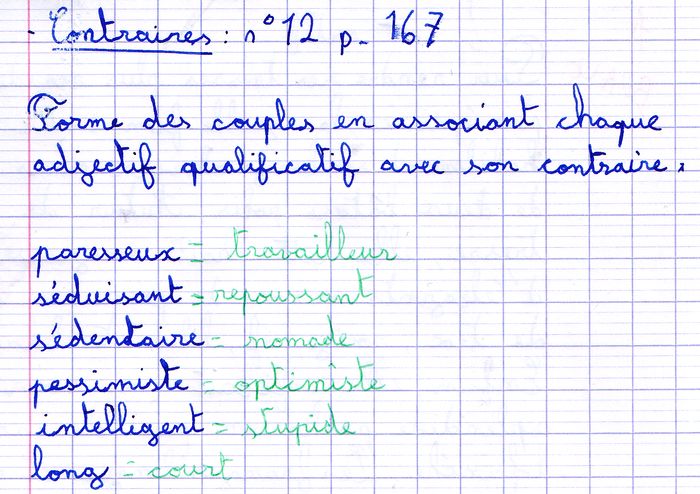 - Contraires : n° 12 p. 167
Forme des couples en associant chaque
adjectif qualificatif avec son contraire.
paresseux = travailleur
séduisant = repoussant
sédentaire = nomade
pessimiste = optimiste
intelligent = stupide
long = court